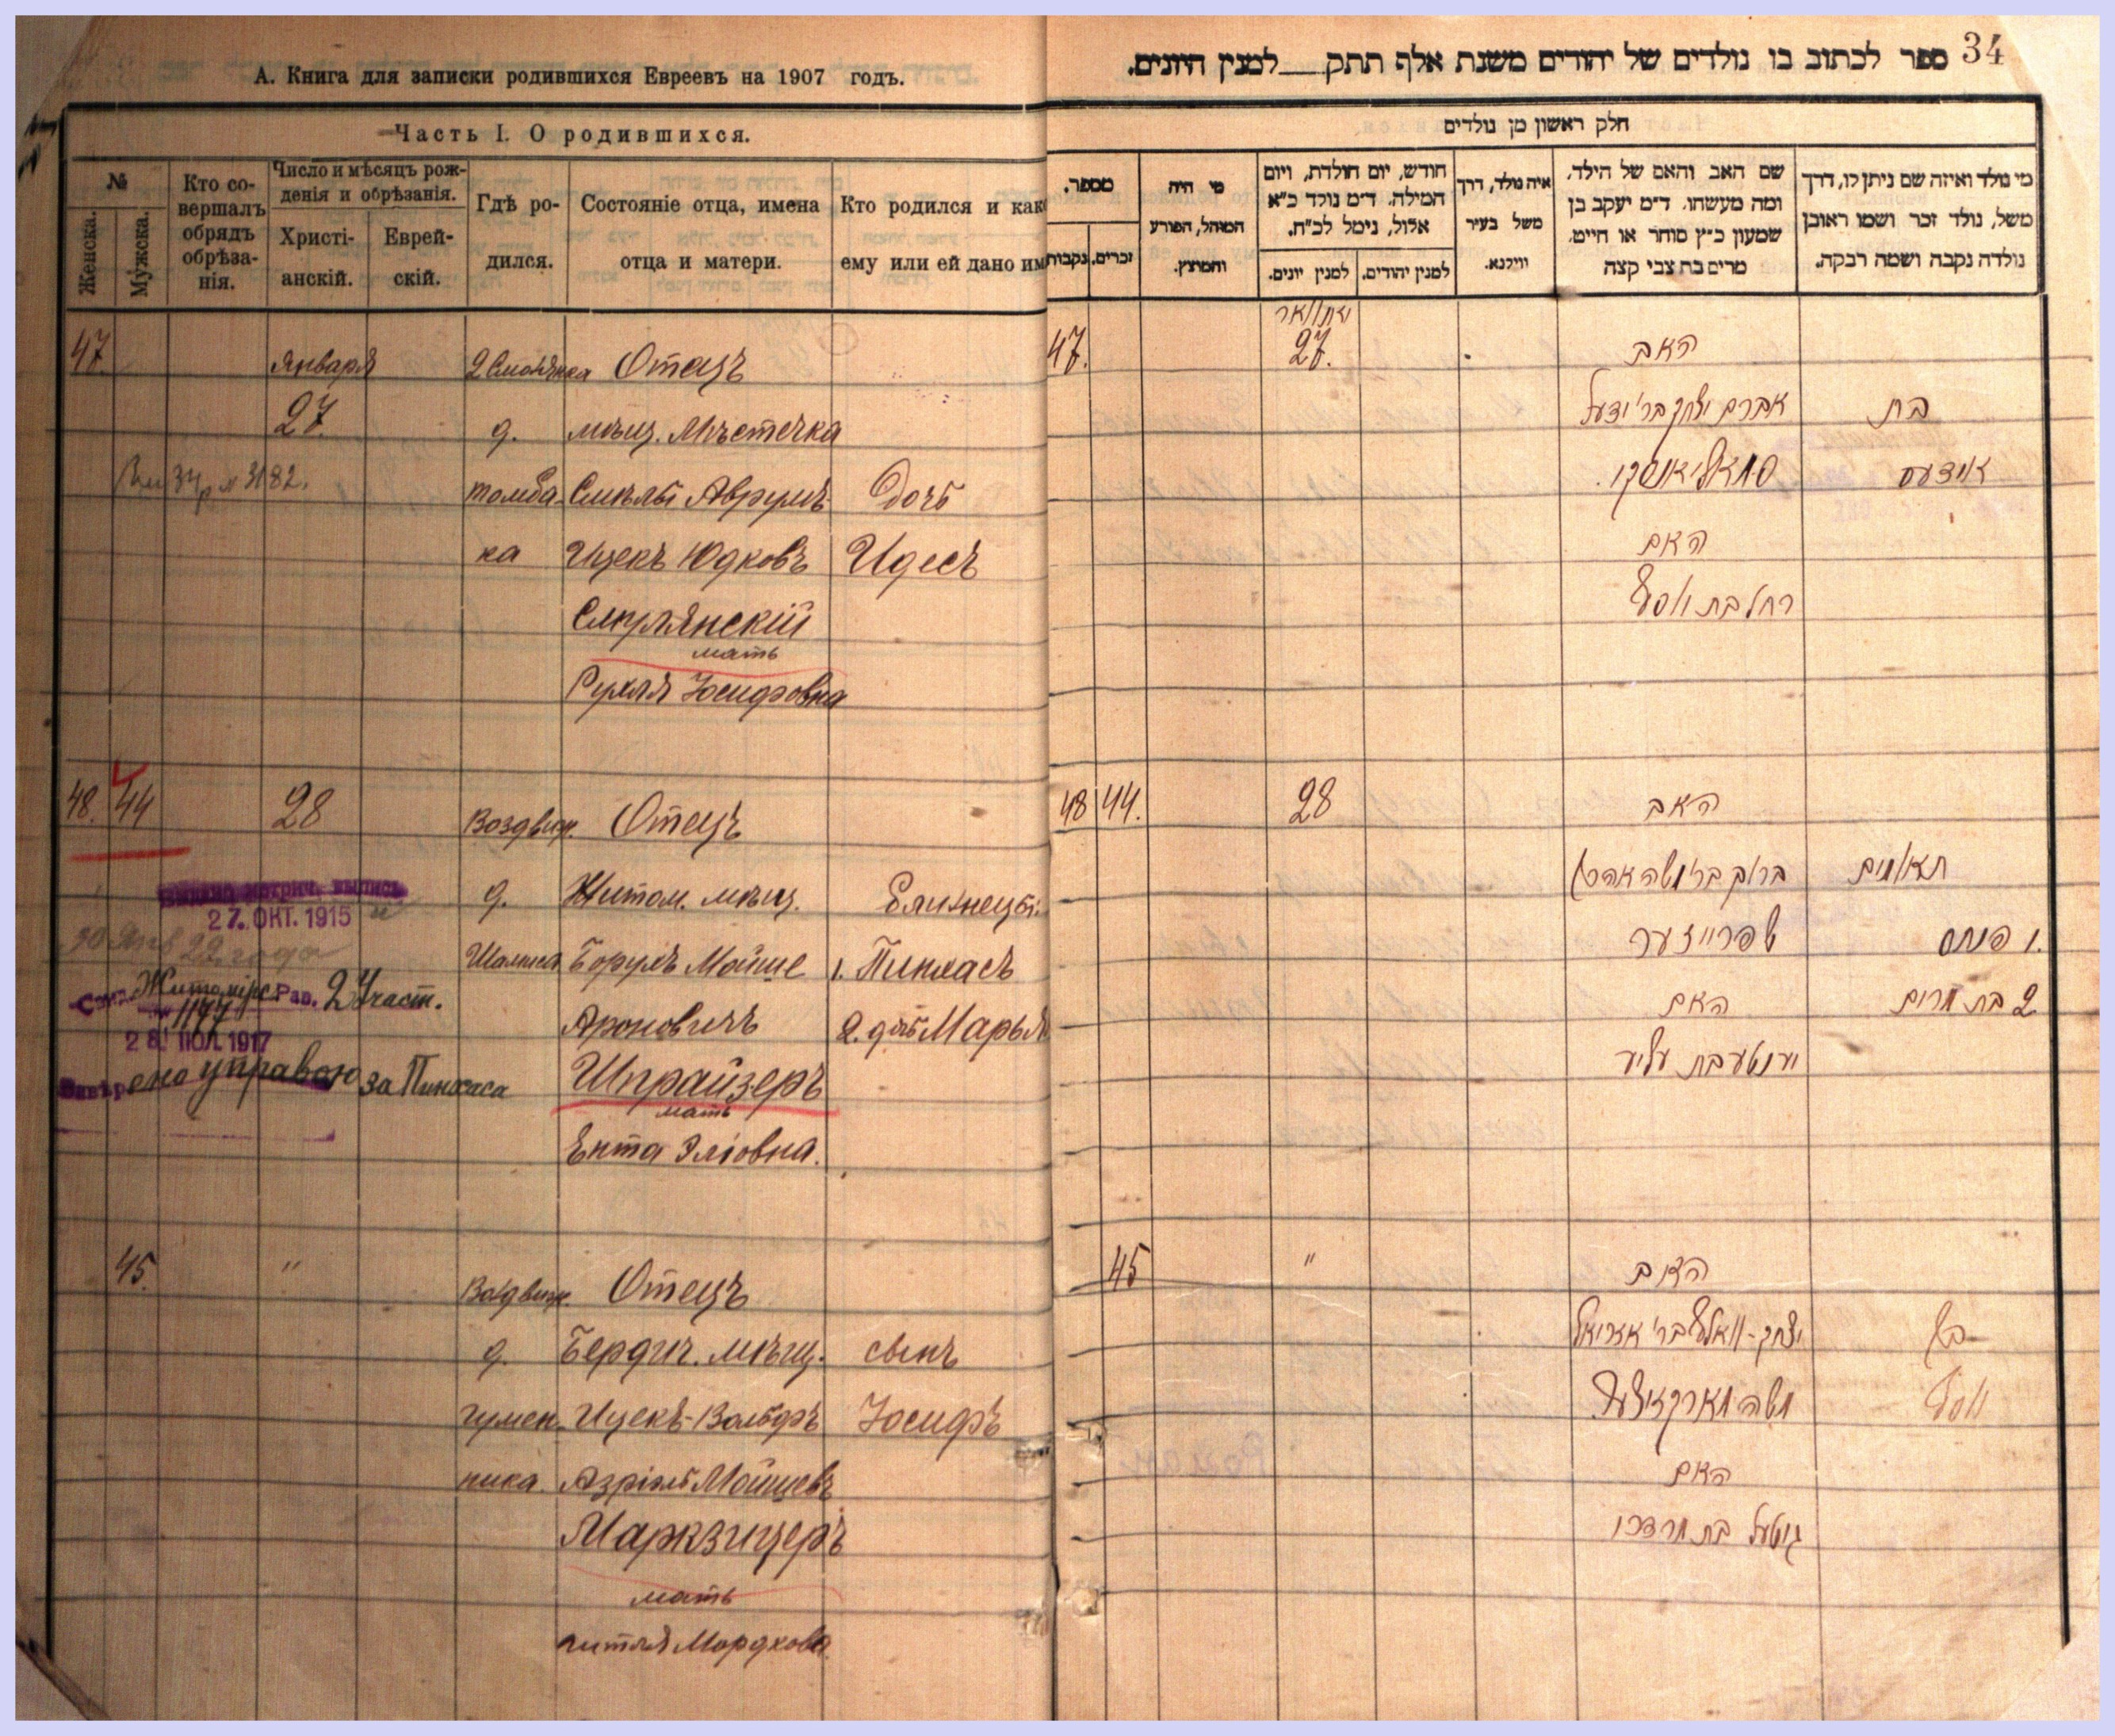 А. Книга для записки родившихся Евреевъ на 1907 годъ.
Часть I. О родившихся.
№
Женска.
Мужска.
Кто со-
вершалъ
обрядъ
обрѣза-
нія.
Число и мѣсяцъ рож-
денія и обрѣзанія.
Христі-
анскій.
Еврей-
скій.
Гдѣ ро-
дился.
Состояніе отца, имена
отца и матери.
Кто родился и как
ему или ей дано им
47. Января 2 Смолянка Отецъ
27. д. мѣщ. Мѣстечка
3182. толба- Смѣлы Аврумъ- Дочь
ка Ицекъ Юдковъ Идесъ
Смулянскій
мать
Рухля Іосифовна
48. 44 28 Воздвиж. Отецъ
Выдана метрич. выпись
27. ОКТ. 1915
д. Житом. мѣщ. Близнецы:
30 Янв 22 года
Шамиса Борухъ Мойше 1. Пинхасъ
Житомірс. Рав. 2 Участ.
№ 1177
Ароновичъ 2. дчь Марья
28 ІЮЛ. 1917
управою за Пинхаса
Шпрайзеръ
мать
Ента Эліовна.
45. " Воздвиж. Отецъ
д. Бердич. мѣщ. сынъ
гумен- Ицекъ-Вольфъ Іосифъ
ника. Азріиль Мойшевъ
Маркзицеръ
мать
Гитля Мордкова.
34
ספר לכתוב בו נולדים של יהודים משנת אלף תתק__למנין היונים.
חלק ראשון מן נולדים
מספר.
נקבות
זכרים.
מי היה
המוהל, הפורע
והמוצץ.
חודש, יום הולדת, ויום
המילה. ד״מ נולד כ״א
אלול, נימל לכ״ח.
למנין יונים.
למנין יהודים.
איה נולד, דרך
משל בעיר
ווילנא.
שם האב והאם של הילד,
ומה מעשהו. ד״מ יעקב בן
שמעון כ״ץ סוחר או חייט,
מרים בת צבי קצה
מי נולד ואיזה שם ניתן לו, דרך
משל, נולד זכר ושמו ראובן
נולדה נקבה ושמה רבקה.
יאנוואר
47. 27. האב
אברם יצחק בר׳ יודעל בת
סמאליאנסקי. אידעס
האם
רחל בת יוסף
48 44. 28 האב
ברוך בר׳ משה אהרן תאומים
שפרייזער 1. פנחס
האם 2 בת מרים
יענטע בת עליע
45 " האב
יצחק-וואלף בר׳ עזריאל בן
משה מארקזיצער יוסף
האם
גיטעל בת מרדכי